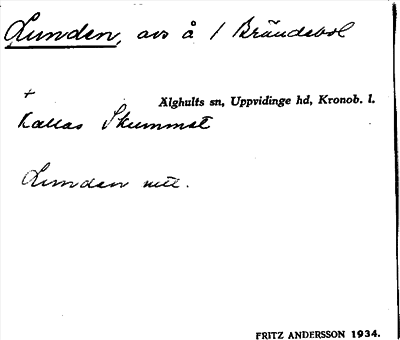 Lunden, avs å 1 Brändebol
+
Älghults sn, Uppvidinge hd, Kronob. l.
Kallas Skummat
Lunden
FRITZ ANDERSSON 1934.